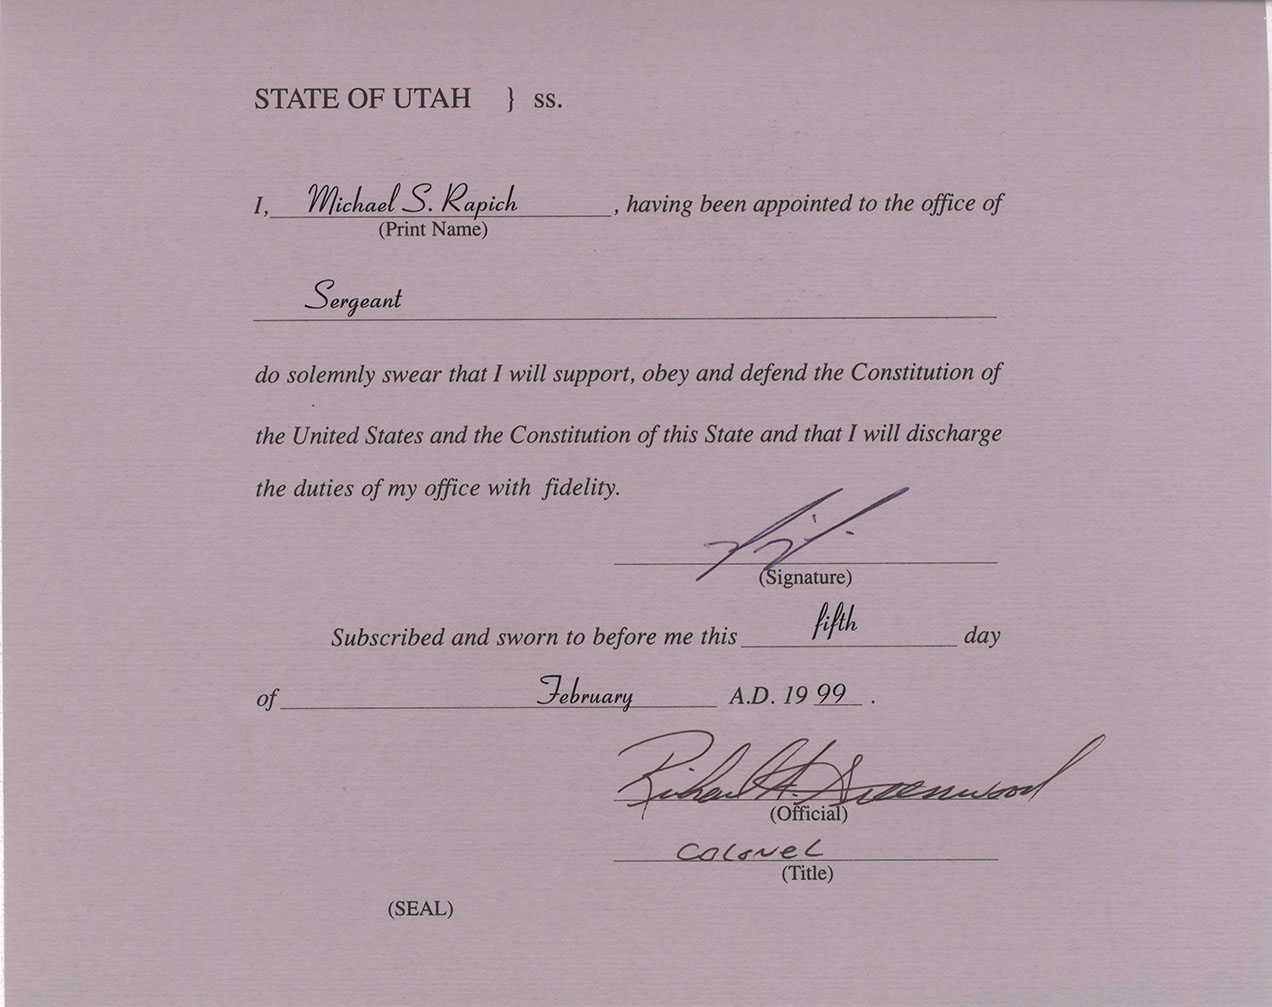 STATE OF UTAH } ss.
I, Michael S. Rapich , having been appointed to the office of
(Print Name)
Sergeant
do solemnly swear that I will support, obey and defend the Constitution of
the United States and the Constitution of this State and that I will discharge
the duties of my office with fidelity.
(Signature)
Subscribed and sworn to before me this fifth day
of February A.D. 19 99 .
Richard A. Greenwood
(Official)
COLONEL
(Title)
(SEAL)